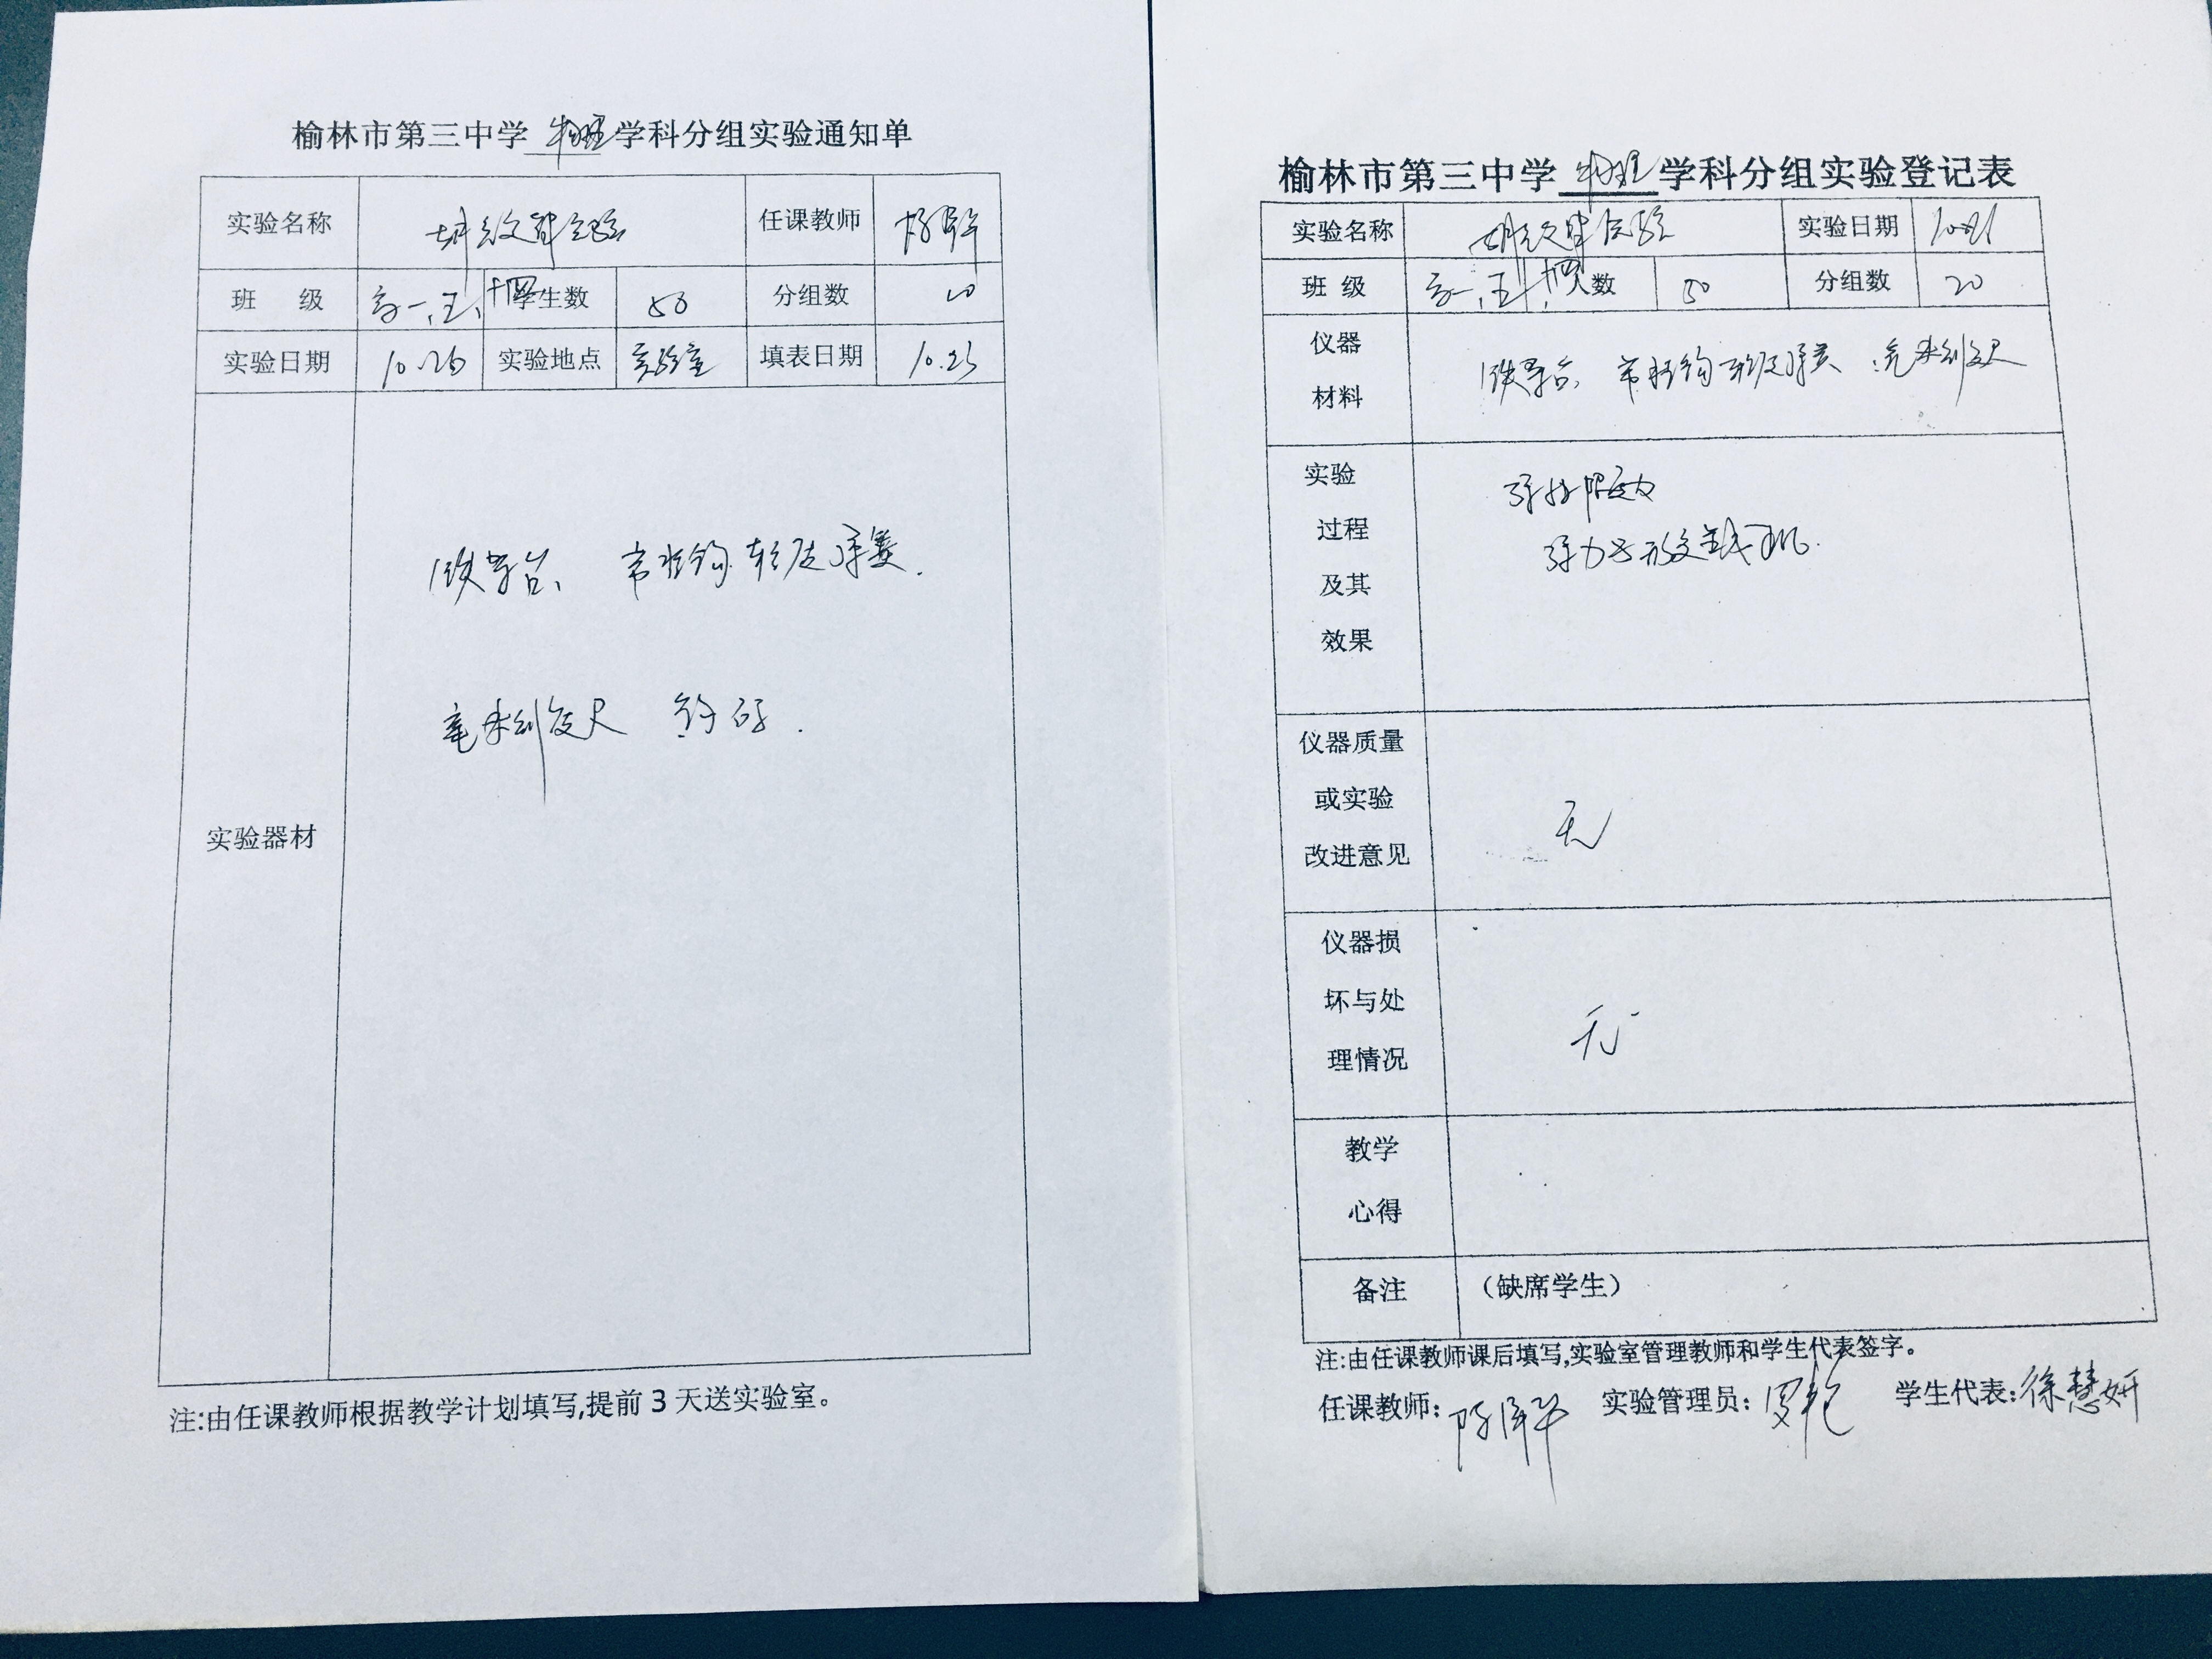 榆林市第三中学 物理 学科分组实验通知单
实验名称 胡克定律实验 任课教师
班 级 高一、五、十四 学生数 50 分组数 20
实验日期 10.26 实验地点 实验室 填表日期 10.23
实验器材
铁架台、 带挂钩 轻质弹簧.
毫米刻度尺 钩码.
注:由任课教师根据教学计划填写,提前3天送实验室。
榆林市第三中学 物理 学科分组实验登记表
实验名称 胡克定律实验 实验日期
班 级 高一、五、十四 人数 50 分组数 20
仪器
材料
铁架台、 带挂钩 轻质弹簧 毫米刻度尺
实验
过程
及其
效果
弹性限度内
弹力与形变量成正比.
仪器质量
或实验
改进意见
无
仪器损
坏与处
理情况
无
教学
心得
备注 (缺席学生)
注:由任课教师课后填写,实验室管理教师和学生代表签字。
任课教师: 实验管理员: 学生代表:徐慧妍